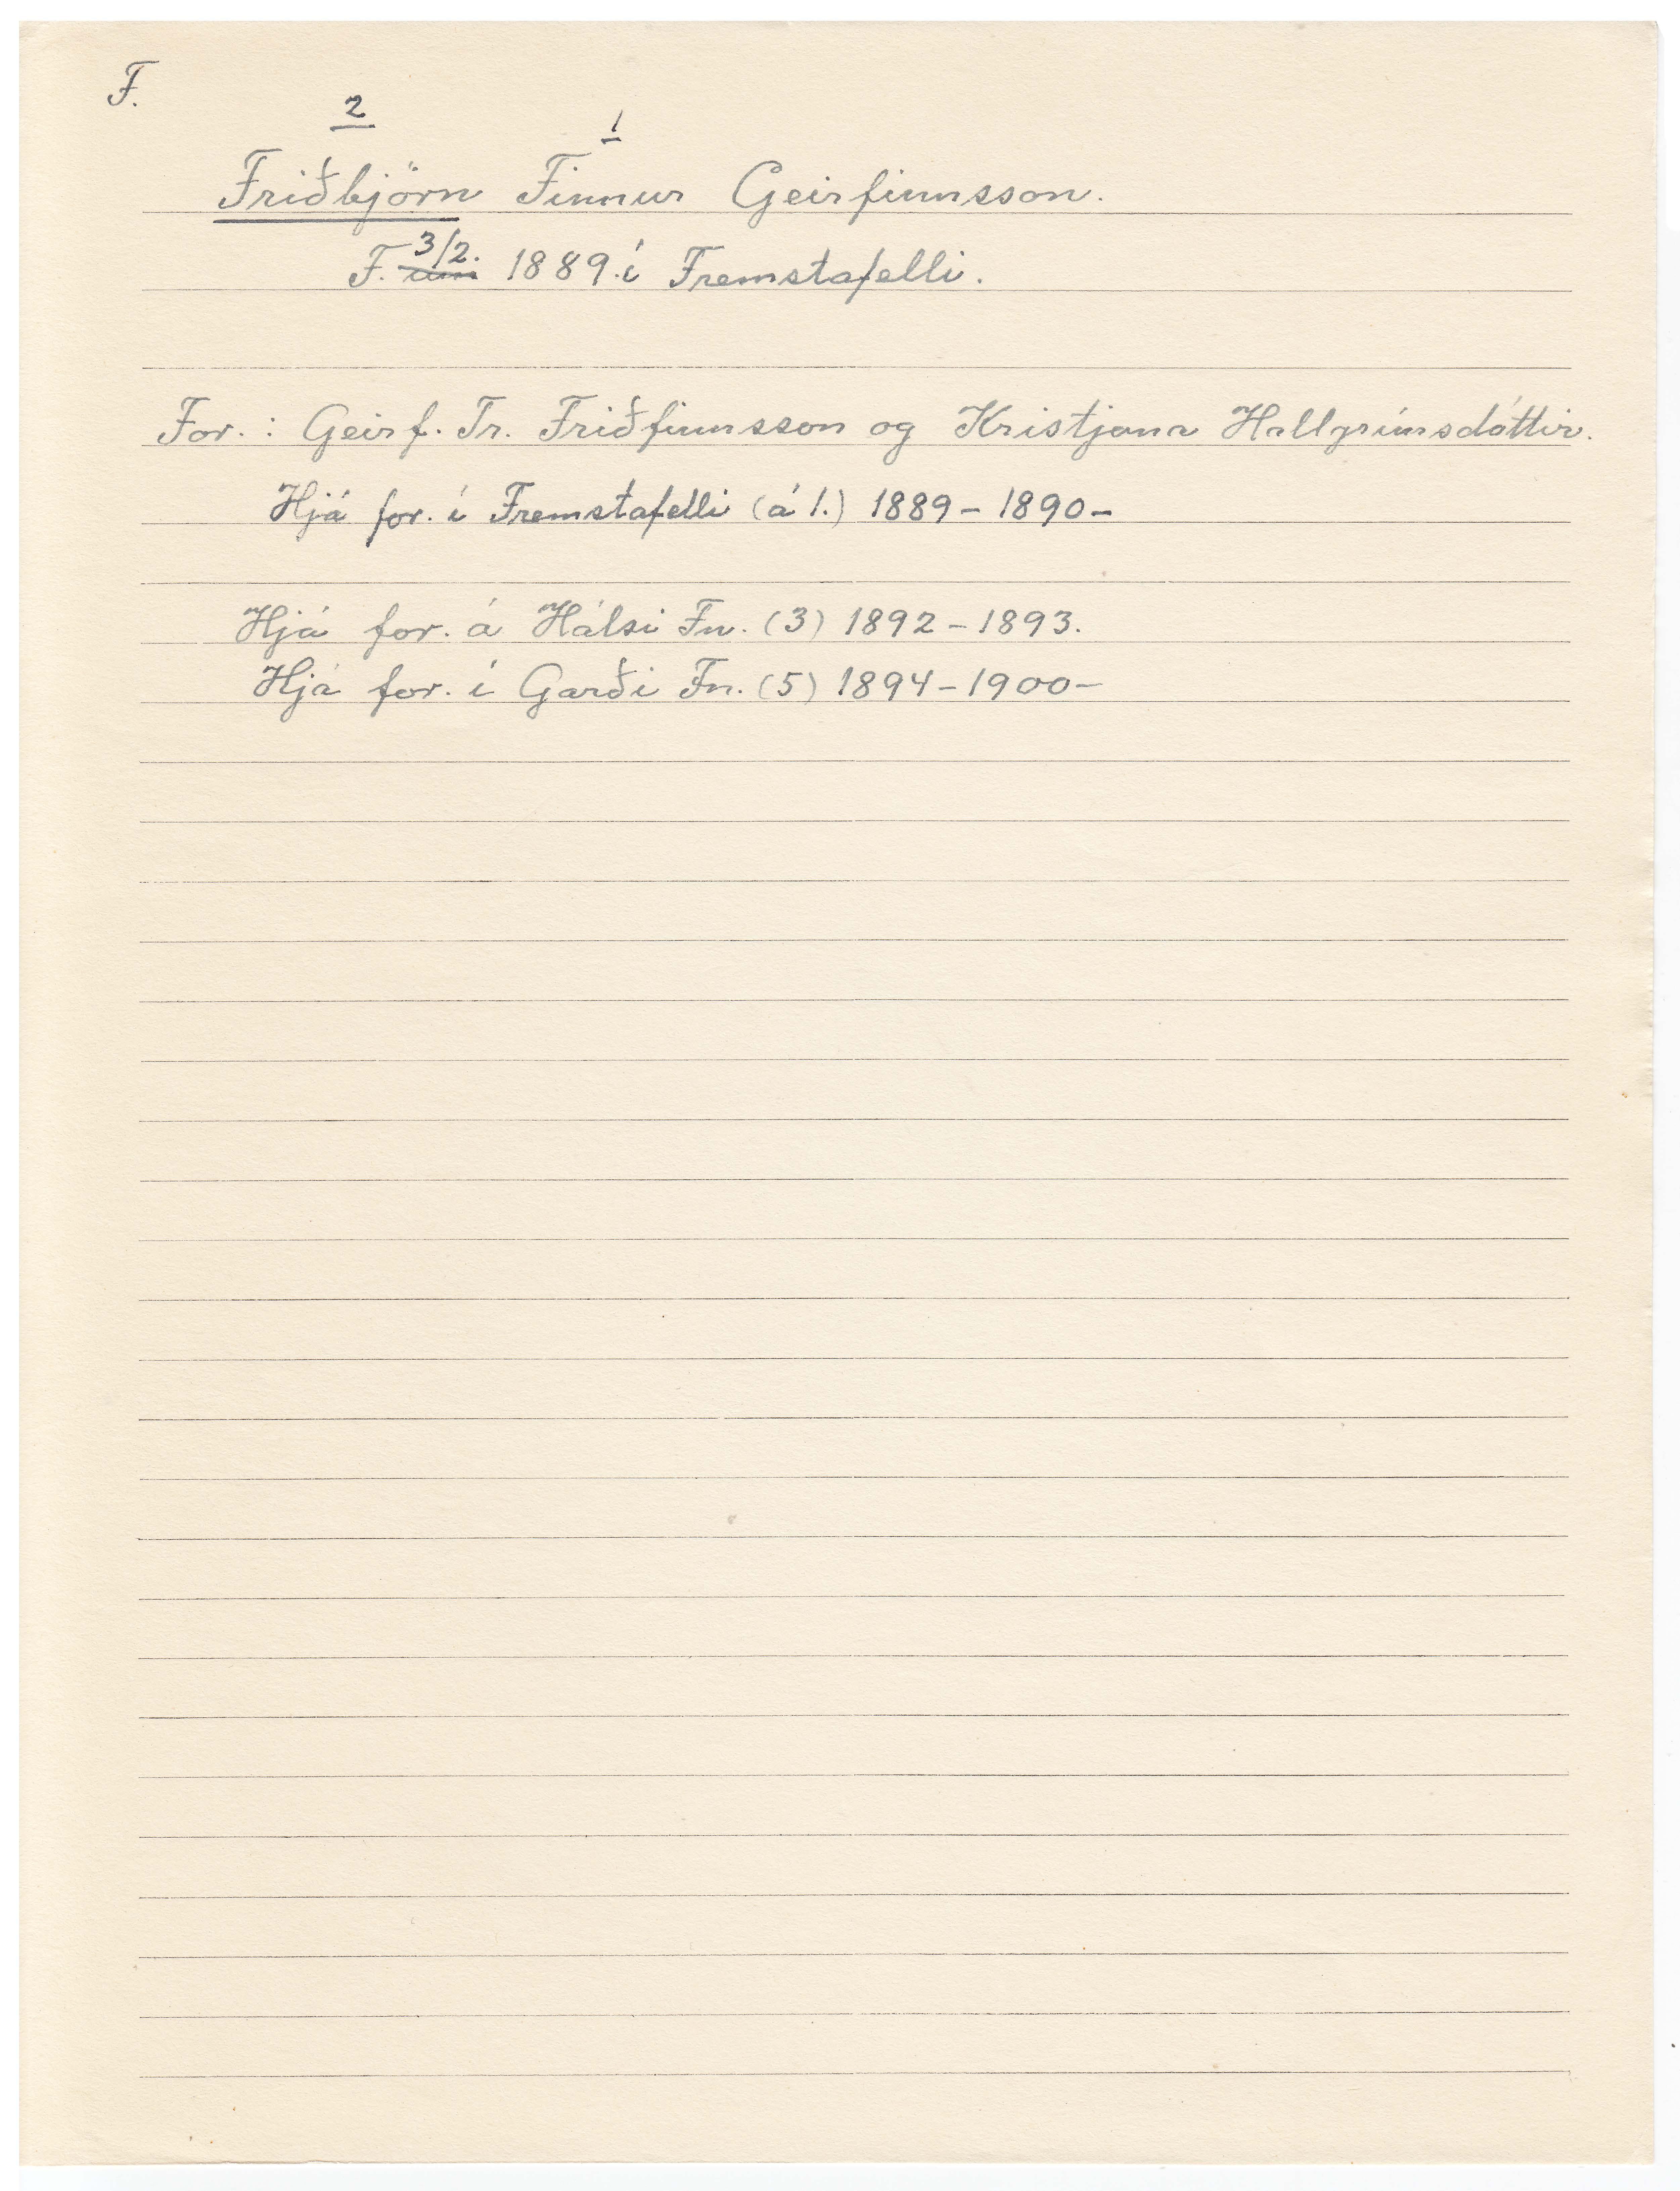 F.
2 1
Friðbjörn Finnur Geirfinnsson.
3/2.
F. um 1889 í Fremstafelli.
For.: Geirf. Tr. Friðfinnsson og Kristjana Hallgrímsdóttir.
Hjá for. í Fremstafelli (á 1.) 1889 - 1890 -
Hjá for. á Hálsi Fn. (3) 1892 - 1893.
Hjá for. í Garði Fn. (5) 1894 - 1900 -